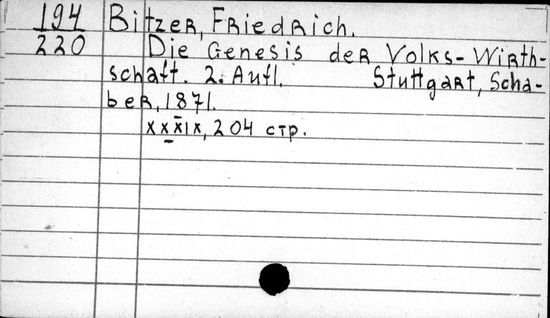 194 Bitzer, Friedrich.
220 Die Genesis der Volks-Wirth-
schaft. 2. Aufl. Stuttgart, Scha-
ber, 1871.
xxxix, 204 стр.